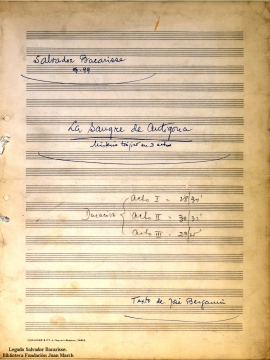 Salvador Bacarisse
La Sangre de Antígona
Misterio trágico en 3 actos
Acto I = 28
Duración Acto II = 30
Acto III = 29
Texto de José Bergamín
Legado Salvador Bacarisse
Biblioteca Fundación Juan March